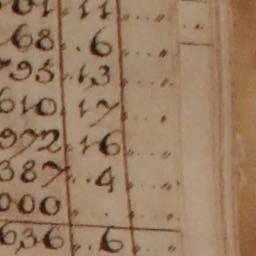 701. 11 ... „
68. . 6 ... „
795. 13 ... „
610. 17 ... „
972. 16 ... „
387. . 4 ... „
000 . . . . „
636. . 6 ... „